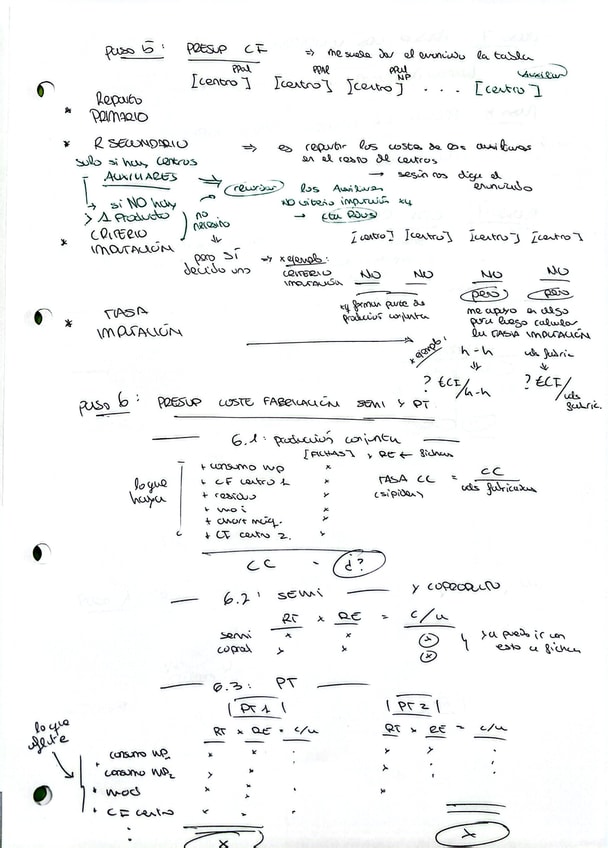 paso 5: PRESUP CF ⇒ me suele dar el enunciado la tabla
PPAL PPAL PPAL NP Auxiliar
[centro] [centro] [centro] . . . [centro]
* Reparto
PRIMARIO
* R SECUNDARIO ⇒ es repartir los costes de los auxiliares
solo si hay centros en el resto de centros
AUXILIARES → según nos diga el enunciado
⇒ recordar los Auxiliares
NO criterio imputación xq
→ CF: RDOS
→ si NO hay
> 1 Producto
no necesito
* CRITERIO
IMPUTACIÓN
[centro] [centro] [centro] [centro]
pero SÍ
decido uno ⇒ * ejemplo:
CRITERIO
IMPUTACIÓN
NO NO NO NO
pero pero
xq forman parte de
producción conjunta
me apoyo en algo
para luego calcular
la TASA IMPUTACIÓN
* TASA
IMPUTACIÓN
* ejemplo: h-h uds fabric
? €CI/h-h ? €CI/uds fabric.
paso 6: PRESUP COSTE FABRICACIÓN SEMI Y PT
6.1: producción conjunta
[FICHAS] x RE ← fichas
lo que
haya
+ consumo MP x
+ CF centro 1 x
+ residuo x
+ MOD x
+ amort máq. x
+ CF centro 2. x
TASA CC = CC / uds fabricadas
(si piden)
CC = ¿?
6.2: SEMI Y COPRODUCTO
RT x RE = c/u
semi x x x
coprod x x x
ya puedo ir con
esto a fichas
6.3: PT
| PT 1 | | PT 2 |
lo que
afecte
RT x RE = c/u RT x RE = c/u
· consumo MP1 x x · x x ·
consumo MP2 x x · x · ·
· MOD x x · x
· CF centro x x ·
x x